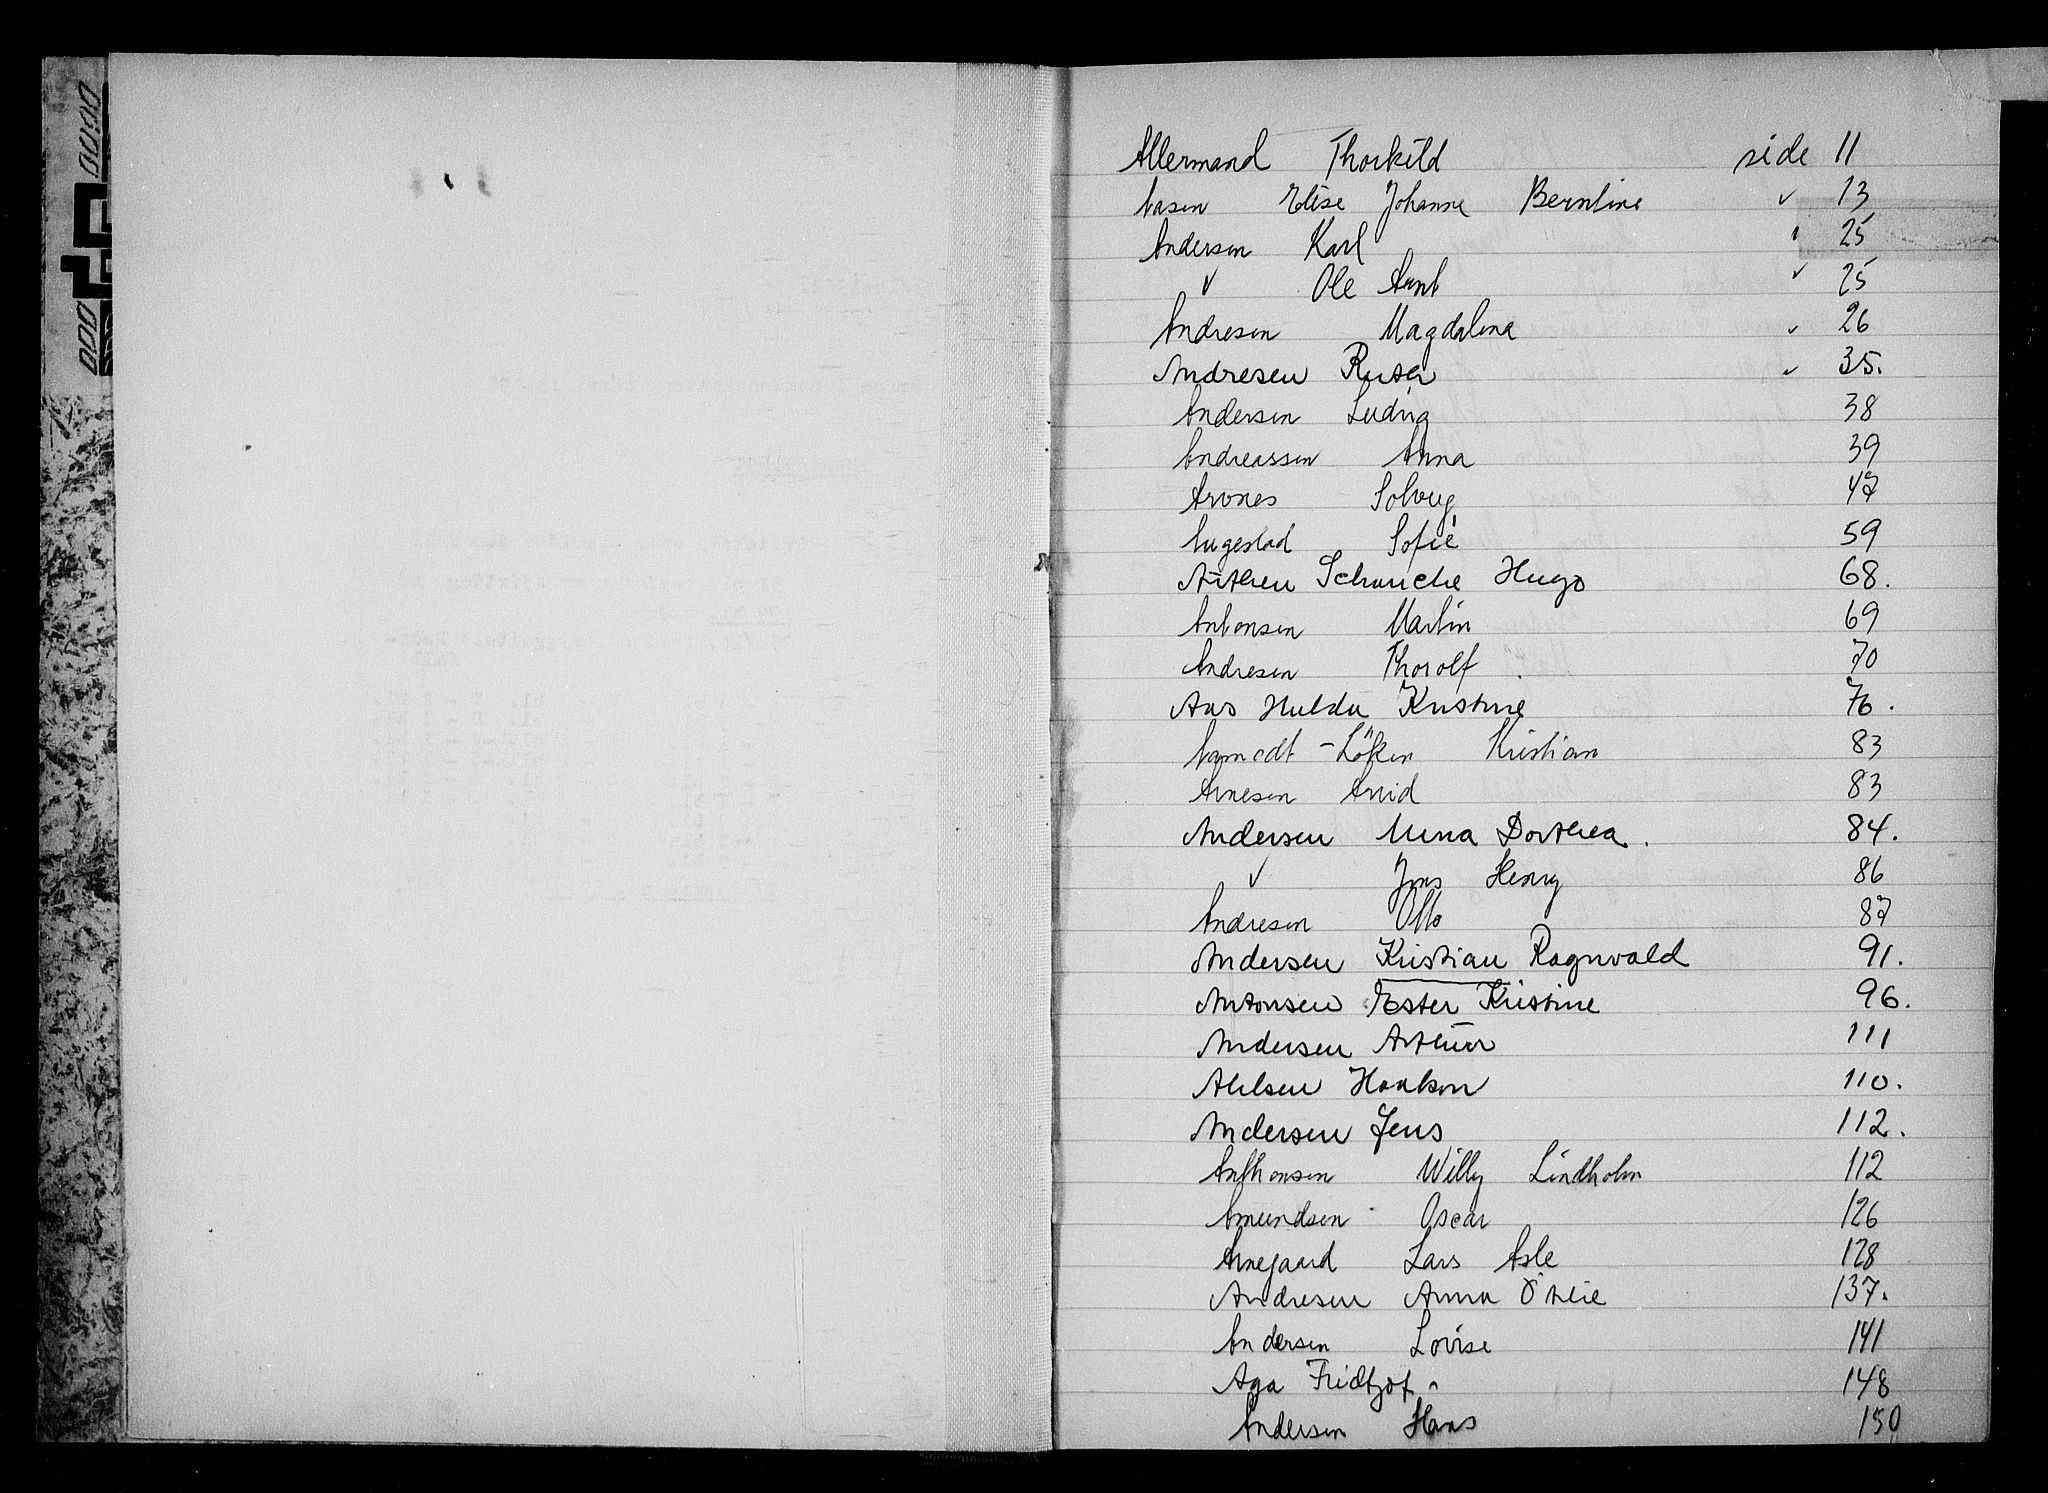 Allermand Thorkild side 11
Aasen Elise Johanne Berntine 13
Andersen Karl 25
" Ole Arnt 25
Andresen Magdalena 26
Andresen Ruth 35.
Andersen Ludvig 38
Andreassen Anna 39
Arones Solveig 47
Augestad Sofie 59
Arthur Schanche Hugo 68.
Antonsen Martin 69
Andresen Thorolf 70
Aas Hulda Kristine 76.
Aamodt - Løken Kristian 83
Arnesen Arvid 83
Andersen Mina Dorthea. 84.
" Jens Henry 86
Andresen Otto 87
Andersen Kristian Ragnvald 91.
Antonsen Ester Kristine 96.
Andersen Arthur 111
Ahlsen Haakon 110.
Andersen Jens 112.
Anthonsen Willy Lindholm 112
Amundsen Oscar 126
Arnegaard Lars Asle 128
Andresen Anna Othie 137.
Andersen Lovise 141
Aga Fridtjof 148
Andersen Hans 150